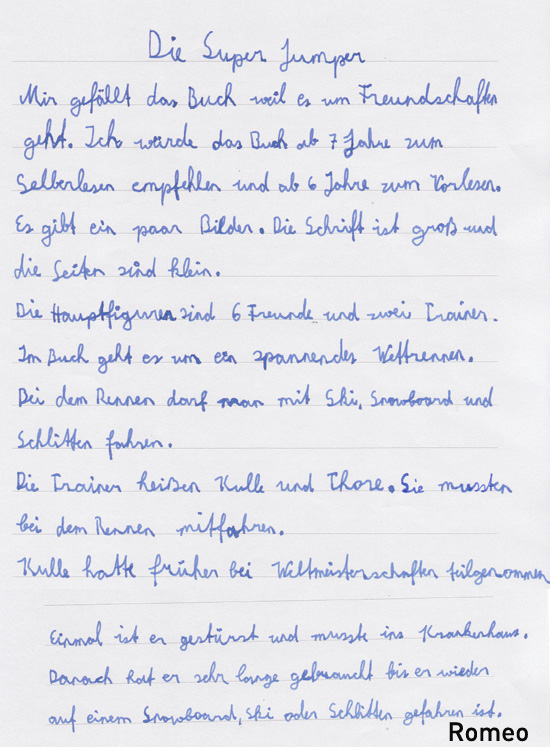 Die Super Jumper
Mir gefällt das Buch weil es um Freundschaften
geht. Ich würde das Buch ab 7 Jahre zum
Selberlesen empfehlen und ab 6 Jahre zum Vorlesen.
Es gibt ein paar Bilder. Die Schrift ist groß und
die Seiten sind klein.
Die Hauptfiguren sind 6 Freunde und zwei Trainer.
Im Buch geht es um ein spannendes Wettrennen.
Bei dem Rennen darf man mit Ski, Snowboard und
Schlitten fahren.
Die Trainer heißen Kulle und Thore. Sie mussten
bei dem Rennen mitfahren.
Kulle hatte früher bei Weltmeisterschaften teilgenommen
Einmal ist er gestürst und musste ins Krankenhaus.
Danach hat er sehr lange gebraucht bis er wieder
auf einem Snowboard, Ski oder Schlitten gefahren ist.
Romeo